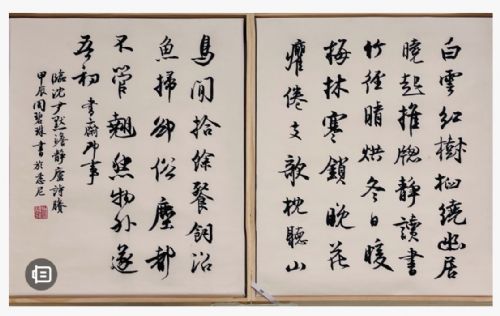 白雲紅樹繞幽居
曉起推牕靜讀書
竹徑晴烘冬日暖
梅林寒鎖晚花
癯倦支欹枕聽山
鳥閒拾餘餐飼沼
魚掃卻俗塵都
不管翹然物外遂
吾初 書 即事
臨沈尹默澹靜廬詩賸
甲辰周碧珠書於悉尼